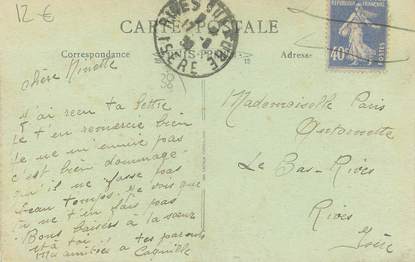 12€
CARTE POSTALE
Correspondance
Adresse
RIVES SUR FURE
ISÈRE
REPUBLIQUE FRANÇAISE
40c
POSTES
chère Ninette
J'ai reçu ta lettre
Je t'en remercie bien
Je ne m'ennuie pas
c'est bien dommage
qu'il ne fasse pas
beau temps. Je vois que
tu ne t'en fais pas
Bons baisers à ta sœur
et à toi
Mes amitiés à tes parents
Mademoiselle Paris
Antoinette
Le Bas-Rives
Rives
Isère